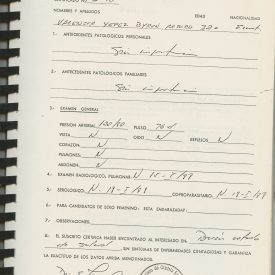 NOMBRES Y APELLIDOS EDAD NACIONALIDAD
VALENCIA YEPEZ BYRON
1.- ANTECEDENTES PATOLOGICOS PERSONALES
Sin importancia
2.- ANTECEDENTES PATOLOGICOS FAMILIARES
Sin importancia
3.- EXAMEN GENERAL
PRESION ARTERIAL 120/80 PULSO
VISTA N OIDO N REFLEJOS N
CORAZON N
PULMONES N
ABDOMEN N
4.- EXAMEN RADIOLOGICO, PULMONAR N.
5.- SEROLOGICO N. COPROPARASITARIO N.
6.- PARA CANDIDATOS DE SEXO FEMENINO, ESTA EMBARAZADA
7.- OBSERVACIONES
8.- EL SUSCRITO CERTIFICA HABER ENCONTRADO AL INTERESADO EN
de salud SIN SINTOMAS DE ENFERMEDADES CONTAGIOSAS Y GARANTIZA
LA EXACTITUD DE LOS DATOS ARRIBA MENCIONADOS.